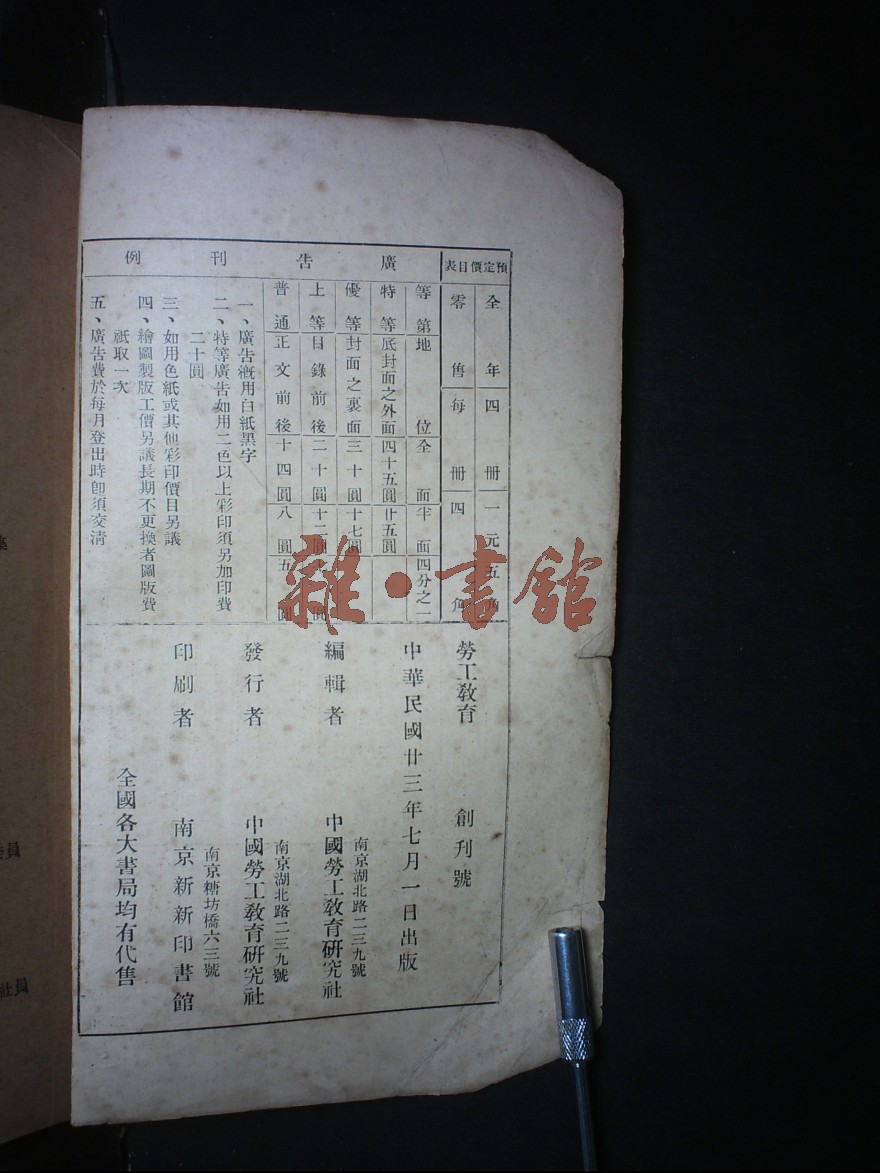 預定價目表
全年四冊一元五角
零售每冊四角
廣告刊例
等第地位全面半面四分之一
特等底封面之外面四十五圓廿五圓
優等封面之裏面三十圓十七圓
上等目錄前後二十圓十二圓
普通正文前後十四圓八圓五圓
一、廣告槪用白紙黑字
二、特等廣告如用二色以上彩印須另加印費
二十圓
三、如用色紙或其他彩印價目另議
四、繪圖製版工價另議長期不更換者圖版費
祇取一次
五、廣告費於每月登出時卽須交淸
勞工敎育 創刊號
中華民國廿三年七月一日出版
南京湖北路二三九號
編輯者 中國勞工敎育研究社
南京湖北路二三九號
發行者 中國勞工敎育研究社
南京糖坊橋六三號
印刷者 南京新新印書館
全國各大書局均有代售
雜·書館
委員
社員